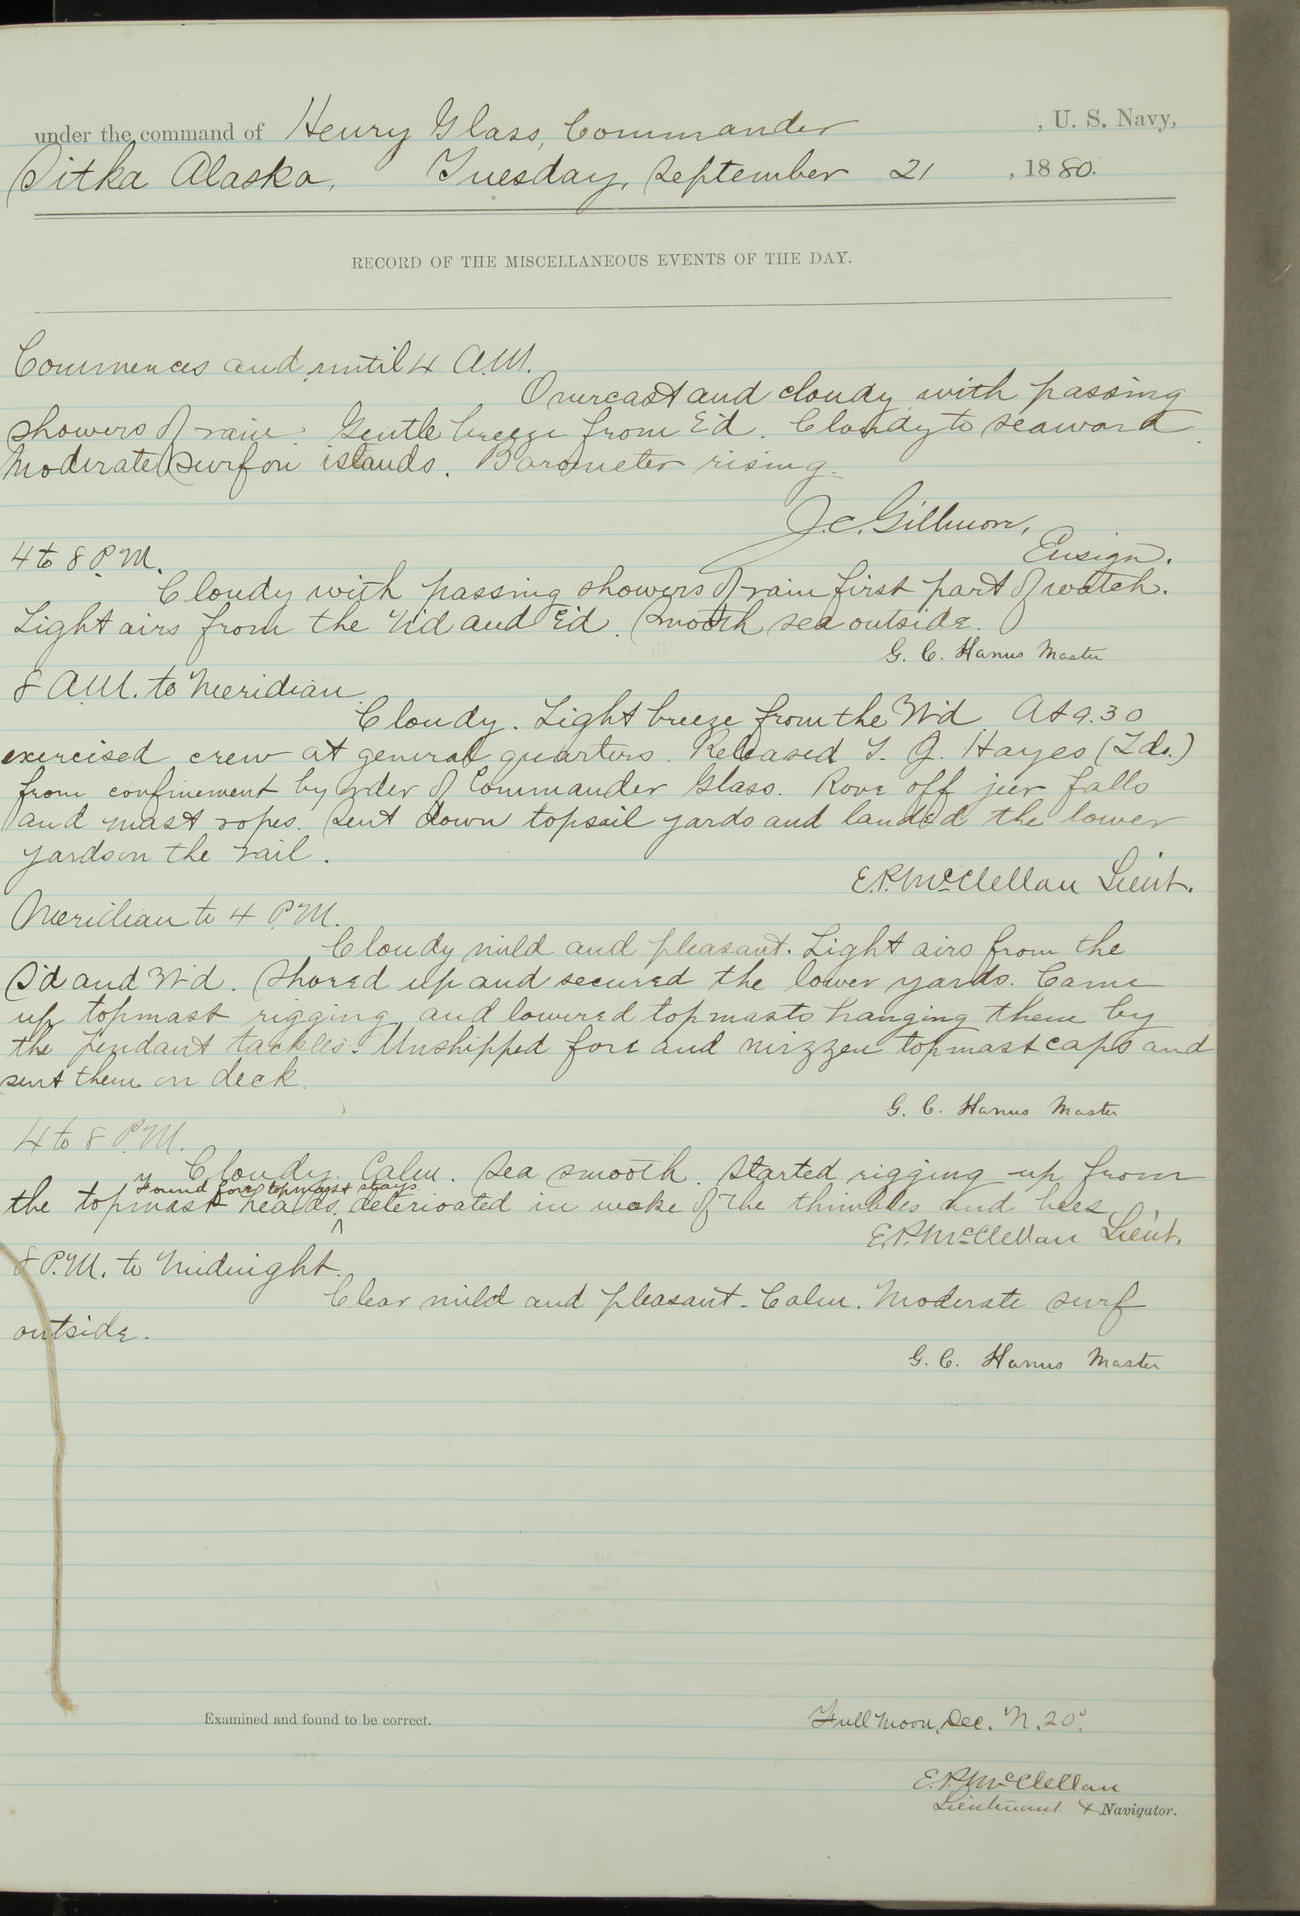 under the command of Henry Glass, Commander , U. S. Navy,
Sitka Alaska, Tuesday, September 21 , 1880.
RECORD OF THE MISCELLANEOUS EVENTS OF THE DAY.
Commences and until 4 A.M.
Overcast and cloudy with passing
showers of rain. Gentle breeze from E'd. Cloudy to seaward.
Moderate surf on islands. Barometer rising.
J.C. Gillmore,
Ensign.
4 to 8 P.M.
Cloudy with passing showers of rain first part of watch.
Light airs from the N'd and E'd. Smooth sea outside.
G. C. Hanus Master
8 A.M. to Meridian.
Cloudy. Light breeze from the W'd At 9.30
exercised crew at general quarters. Released T. J. Hayes (Lds.)
from confinement by order of Commander Glass. Rove off jeer falls
and mast ropes. Sent down topsail yards and landed the lower
yards on the rail.
E.P. McClellan Lieut.
Meridian to 4 P.M.
Cloudy mild and pleasant. Light airs from the
S'd and W'd. Shored up and secured the lower yards. Came
up topmast rigging and lowered topmasts hanging them by
the pendant tackles. Unshipped fore and mizzen topmast caps and
sent them on deck.
G. C. Hanus Master
4 to 8 P.M.
Cloudy. Calm. Sea smooth. Started rigging up from
Found fore topmast stays
the topmast heads. ^ deterioated in wake of the thimbles and bees.
E.P. McClellan Lieut.
8 P.M. to Midnight.
Clear mild and pleasant. Calm. Moderate surf
outside.
G. C. Hanus Master
Examined and found to be correct. Full Moon, Dec. N. 20°.
E.P. McClellan
Lieutenant & Navigator.